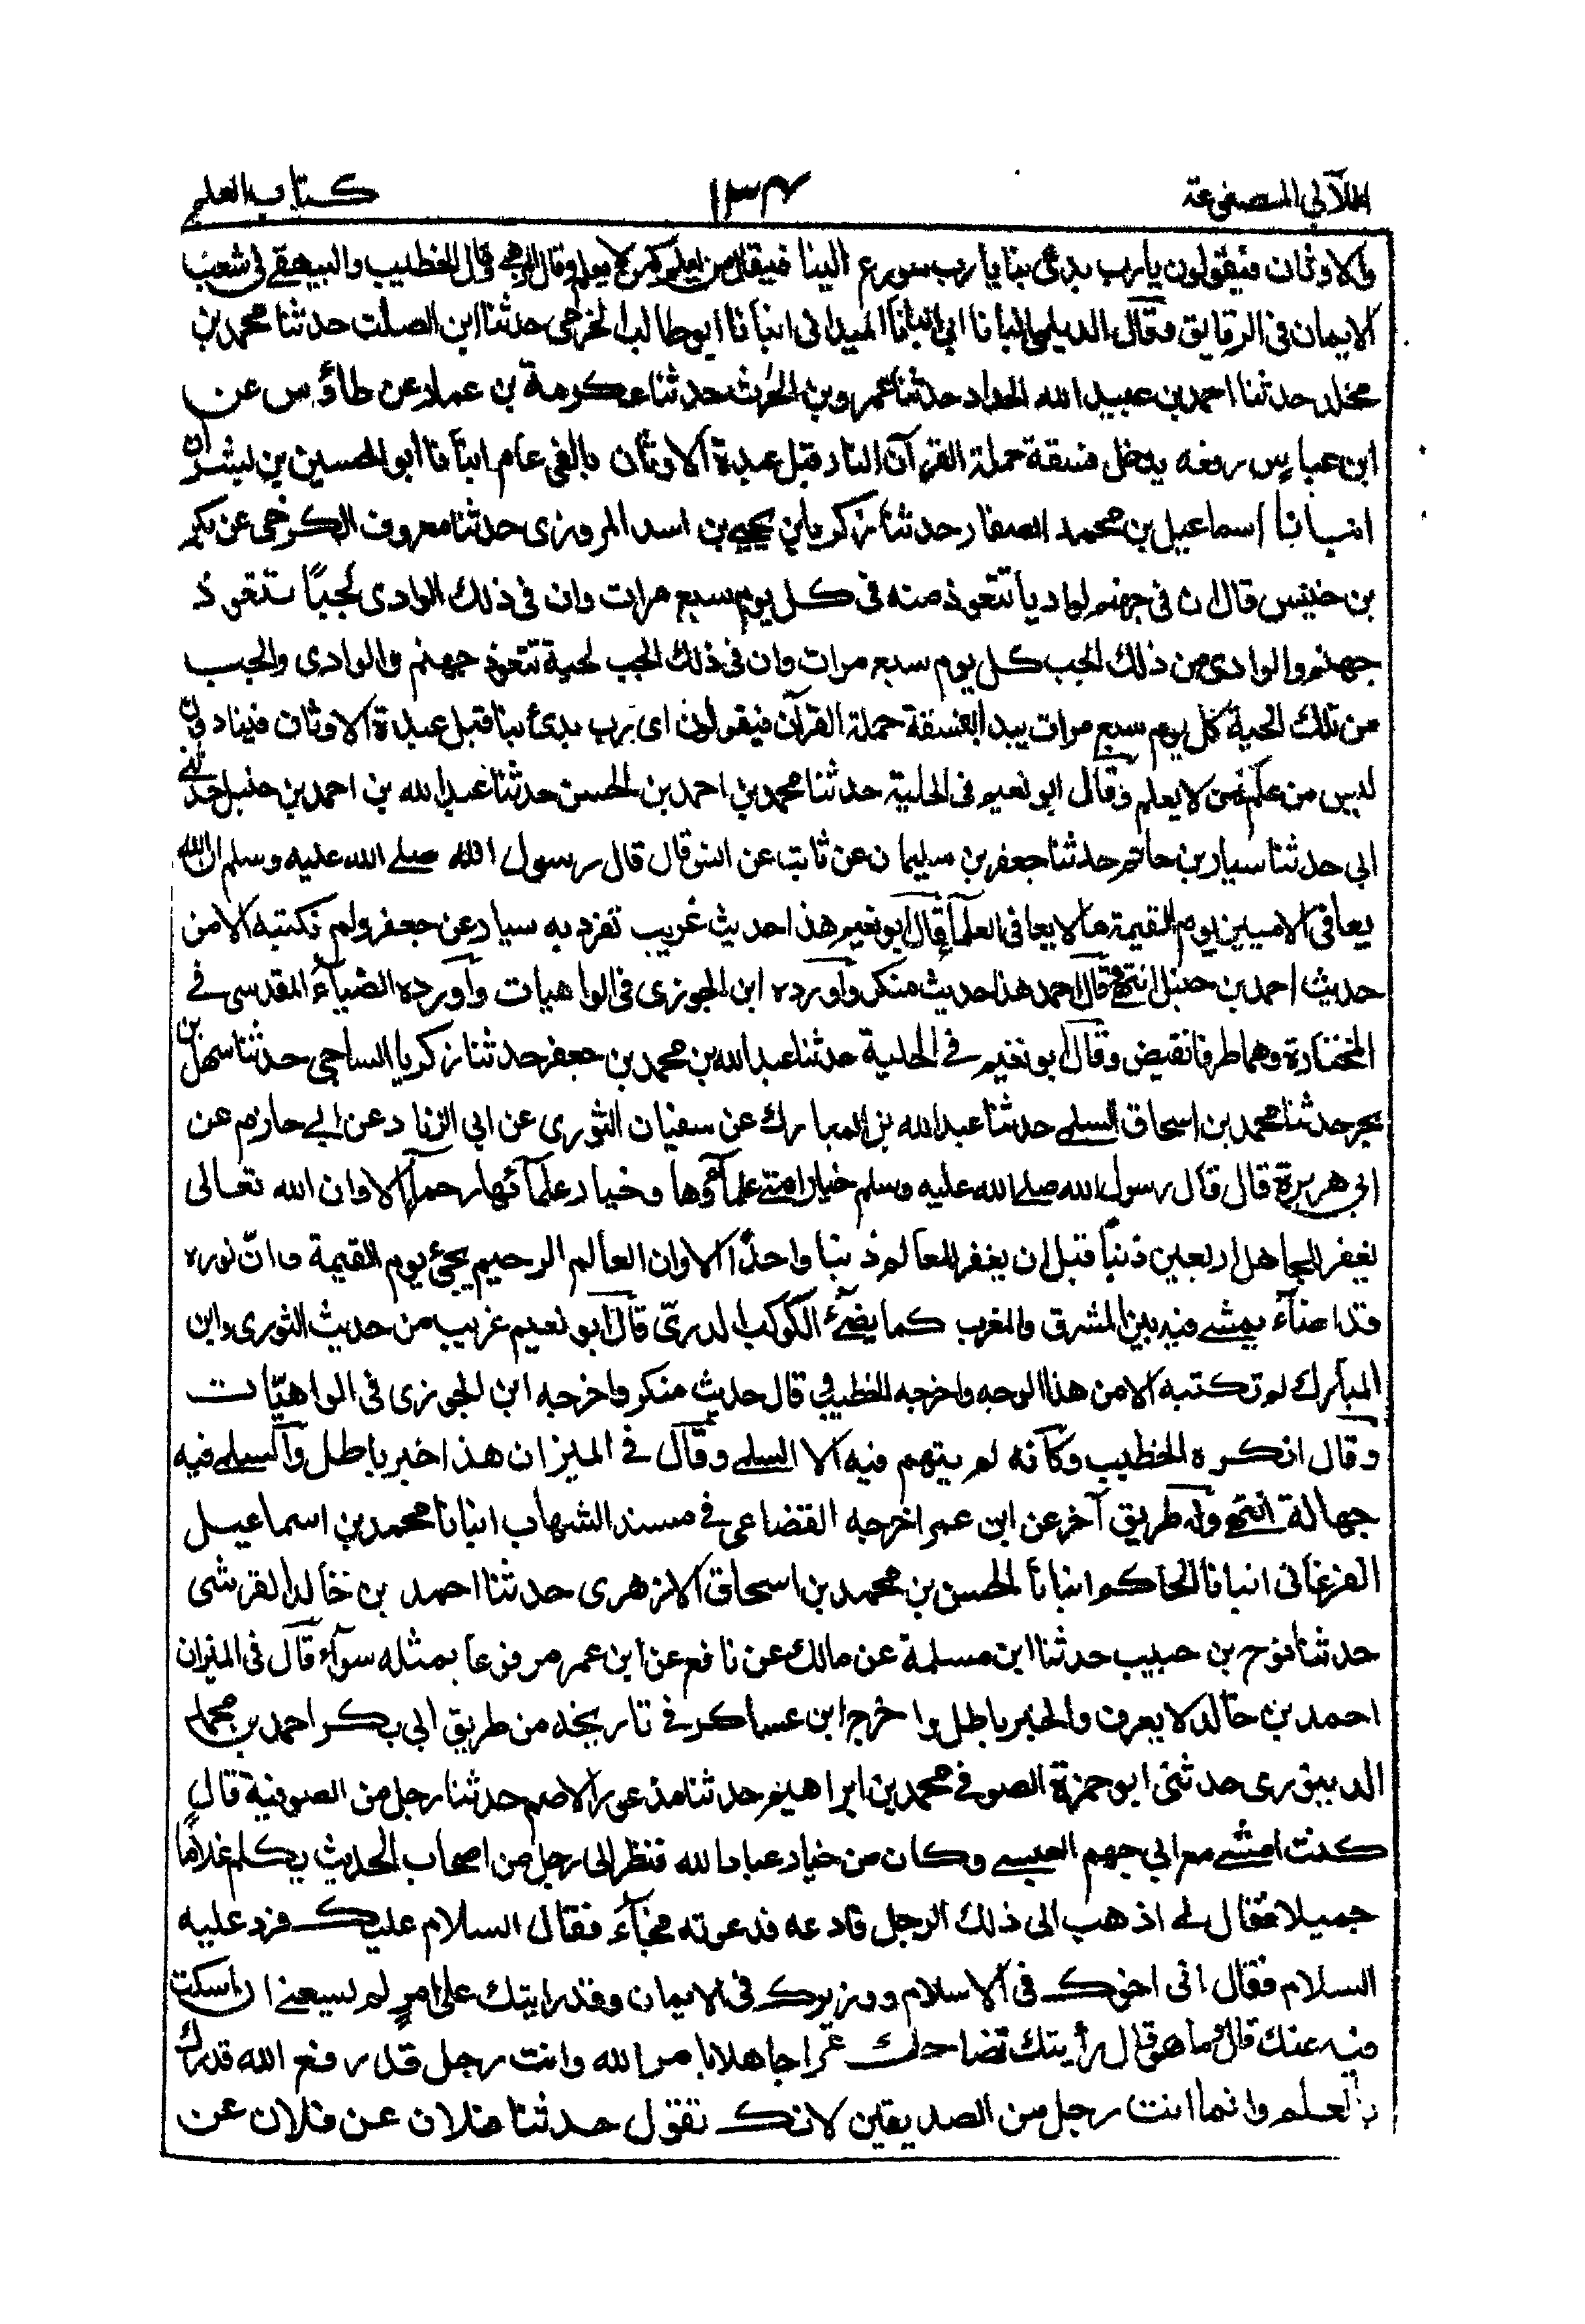 اللآلي المصنوعة ١٣٤ كتاب العلم
والاوثان فيقولون يارب بدئ بنا يارب سورع الينا فيقال من يعلم كمن لا يعلم وقال الخطيب والبيهقي في شعب
الايمان في الرقايق وقال الديلمي انبأنا ابي انبانا الميدانى انبأنا ابو طالب الحزمى حدثنا ابن الصلت حدثنا محمد بن
مخلد حدثنا احمد بن عبيد الله الحداد حدثنا عمرو بن الحرث حدثنا عكرمة بن عمار عن طاؤس عن
ابن عباس رفعه يدخل فسقة حملة القرآن النار قبل عبدة الاوثان بالفي عام انبأنا ابو الحسين بن بشران
انبأنا اسماعيل بن محمد الصفار حدثنا زكريا بن يحيى بن اسد المروزى حدثنا معروف الكرخى عن بكر
بن خنيس قال ان فى جهنم لواديا تتعوذ منه فى كل يوم سبع مرات وان فى ذلك الوادى لجبًا تتعوذ
جهنم والوادى من ذلك الجب كل يوم سبع مرات وان فى ذلك الجب لحية تتعوذ جهنم والوادى والجب
من تلك الحية كل يوم سبع مرات يبدا بفسقة حملة القرآن فيقولون اى رب بدئ بنا قبل عبدة الاوثان فينادون
ليس من علم كمن لا يعلم وقال ابو نعيم فى الحلية حدثنا محمد بن احمد بن الحسن حدثنا عبد الله بن احمد بن حنبل حدثني
ابي حدثنا سيار بن حاتم حدثنا جعفر بن سليمان عن ثابت عن انس قال قال رسول الله صلى الله عليه وسلم ان الله
يعافى الاميين يوم القيمة ما لا يعافى العلمآء قال ابو نعيم هذا حديث غريب تفرد به سيار عن جعفر ولم نكتبه الا من
حديث احمد بن حنبل انتهى وقال احمد هذا حديث منكر واورده ابن الجوزى فى الواهيات وأورده الضيآء المقدسى فى
المختارة وهما طرفا نقيض وقال ابو نعيم فى الحلية حدثنا عبد الله بن محمد بن جعفر حدثنا زكريا الساجى حدثنا سهل بن
بحر حدثنا محمد بن اسحاق السلمى حدثنا عبد الله بن المبارك عن سفيان الثورى عن ابي الزناد عن ابي حازم عن
ابي هريرة قال قال رسول الله صلى الله عليه وسلم خيار امتى علمآؤها وخيار علمآئها رحمآء الا وان الله تعالى
يغفر للجاهل اربعين ذنبًا قبل ان يغفر للعالم ذنبا واحدًا الا وان العالم الرحيم يجئ يوم القيمة وانّ نوره
قد اضآء يمشى فيه بين المشرق والمغرب كما يضئ الكوكب الدرىّ قال ابو نعيم غريب من حديث الثورى وابن
المبارك لم تكتبه الا من هذا الوجه واخرجه الخطيب قال حديث منكر واخرجه ابن الجوزى فى الواهيّات
وقال انكره الخطيب وكأنه لم يتهم فيه الا السلمى وقال فى الميزان هذا خبر باطل والسلمى فيه
جهالة انتهى وله طريق آخر عن ابن عمر اخرجه القضاعى فى مسند الشهاب انبانا محمد بن اسماعيل
الفرغانى انبانا الحاكم انبانا الحسن بن محمد بن اسحاق الازهرى حدثنا احمد بن خالد القرشى
حدثنا نوح بن حبيب حدثنا ابن مسلمة عن مالك عن نافع عن ابن عمر مرفوعا بمثله سوآء قال فى الميزان
احمد بن خالد لا يعرف والخبر باطل واخرج ابن عساكر فى تاريخه من طريق ابي بكر احمد بن محمد
الدينورى حدثنى ابو حمزة الصوفى محمد بن ابراهيم حدثنا مذعور الاصم حدثنا رجل من الصوفية قال
كنت امشى مع ابي جهم العبسى وكان من خيار عباد الله فنظر الى رجل من اصحاب الحديث يكلم غلامًا
جميلا فقال لى اذهب الى ذلك الرجل فادعه فدعوته فجآء فقال السلام عليك فرد عليه
السلام فقال انى اخوك فى الاسلام ووزيرك فى الايمان وقد رايتك على امرٍ لم يسعنى ان اسكت
فيه عنك قال وما هو قال رأيتك تضاحك غرا جاهلا بامر الله وانت رجل قد رفع الله قدرك
بالعلم وانما انت رجل من الصديقين لانك تقول حدثنا فلان عن فلان عن